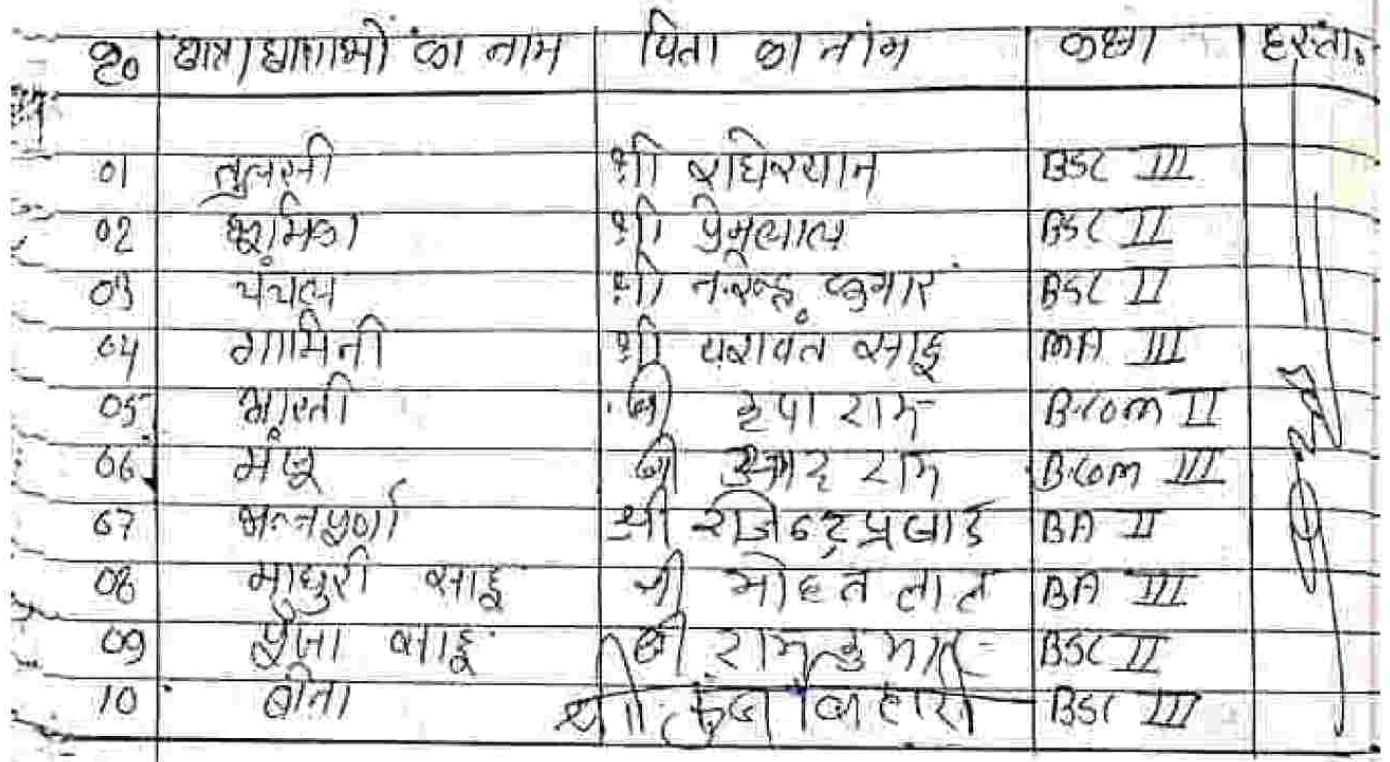 क्र० छात्र/छात्राओं का नाम पिता का नाम कक्षा हस्ता.
01 तुलसी श्री राधेश्याम BSC III
02 भूमिका श्री प्रेमलाल BSC II
03 चंचल श्री नरेन्द्र कुमार BSC II
04 यामिनी श्री यशवंत साहू MA III
05 भारती श्री कृपा राम B.com II
06 मंजू श्री राम B.com III
07 अन्नपूर्णा श्री राजेन्द्र प्रसाद BA II
08 माधुरी साहू श्री मोहन लाल BA III
09 पूजा साहू श्री रामकुमार BSC II
10 श्री कुंज बिहारी BSC III